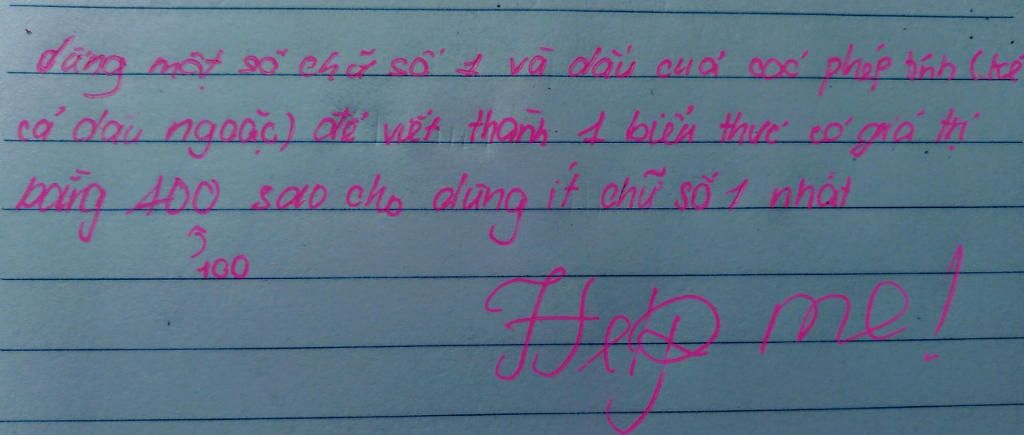 dùng một số chữ số 1 và dấu của các phép tính (kể
cả dấu ngoặc) để viết thành 1 biểu thức có giá trị
bằng 100 sao cho dùng ít chữ số 1 nhất
100
Help me!